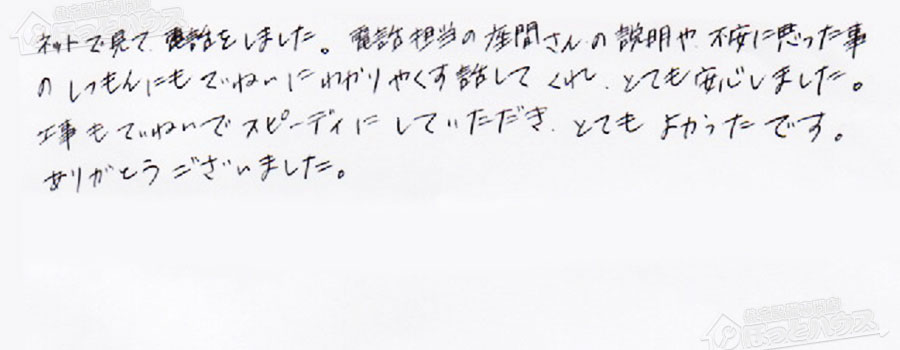 ネットで見て、電話をしました。電話担当の座間さんの説明や、不安に思った事
のしつもんにもていねいにわかりやくす話してくれ、とても安心しました。
工事もていねいでスピーディにしていただき、とてもよかったです。
ありがとうございました。
ほっとハウス
ほっとハウス